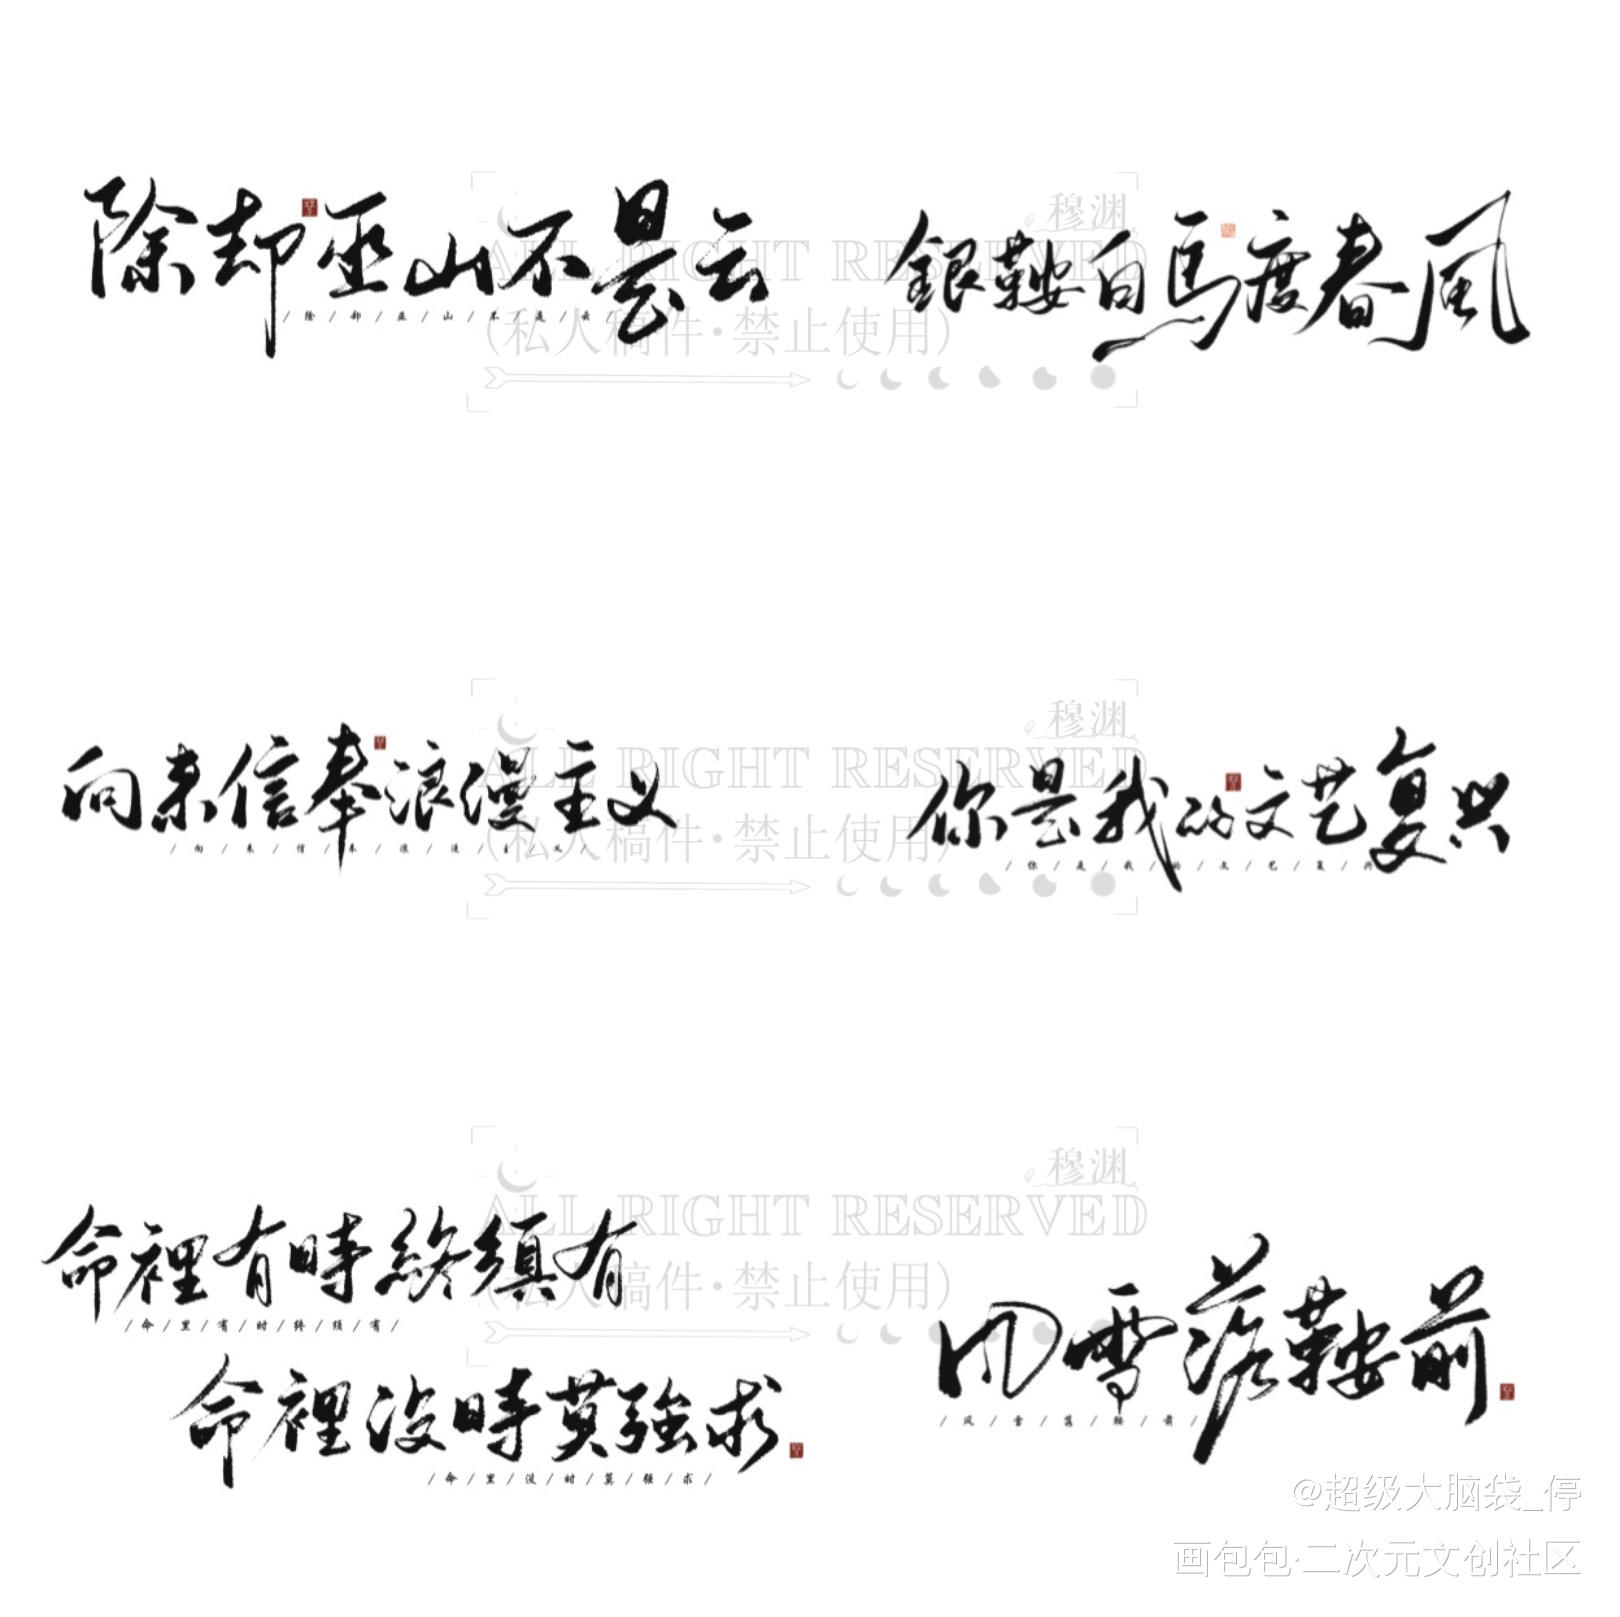 除却巫山不是云
/ 除 / 却 / 巫 / 山 / 不 / 是 / 云 /
銀鞍白馬度春風
穆渊
ALL RIGHT RESERVED
(私人稿件·禁止使用)
向来信奉浪漫主义
/ 向 / 来 / 信 / 奉 / 浪 / 漫 / 主 / 义 /
你是我的文艺复兴
/ 你 / 是 / 我 / 的 / 文 / 艺 / 复 / 兴
穆渊
ALL RIGHT RESERVED
(私人稿件·禁止使用)
命裡有時終須有
/ 命 / 里 / 有 / 时 / 终 / 须 / 有 /
命裡没時莫強求
/ 命 / 里 / 没 / 时 / 莫 / 强 / 求 /
穆渊
ALL RIGHT RESERVED
(私人稿件·禁止使用)
风雪落鞍前
/ 风 / 雪 / 落 / 鞍 / 前 /
@超级大脑袋_停
画包包·二次元文创社区